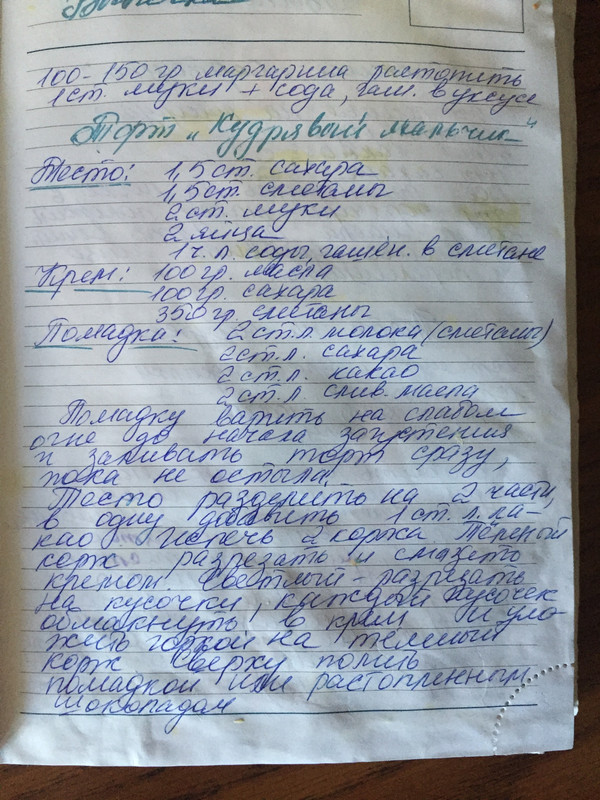 Выпечка
100-150 гр. маргарина растопить
1 ст. муки + сода, гаш. в уксусе
Торт „Кудрявый мальчик"
Тесто: 1,5 ст. сахара
1,5 ст. сметаны
2 ст. муки
2 яйца
1 ч. л. соды, гашён. в сметане
Крем: 100 гр. масла
100 гр. сахара
350 гр. сметаны
Помадка: 2 ст. л молока (сметаны)
2 ст. л. сахара
2 ст. л. какао
2 ст. л слив. масла
Помадку варить на слабом
огне до начала загустения
и заливать торт сразу,
пока не остыла.
Тесто разделить на 2 части,
в одну добавить 1 ст. л. ка-
као Испечь 2 коржа. Тёмный
корж разрезать и смазать
кремом. Светлый - разрезать
на кусочки, каждый кусочек
обмакнуть в крем и уло-
жить горкой на темный
корж Сверху полить
помадкой или растопленным
шоколадом